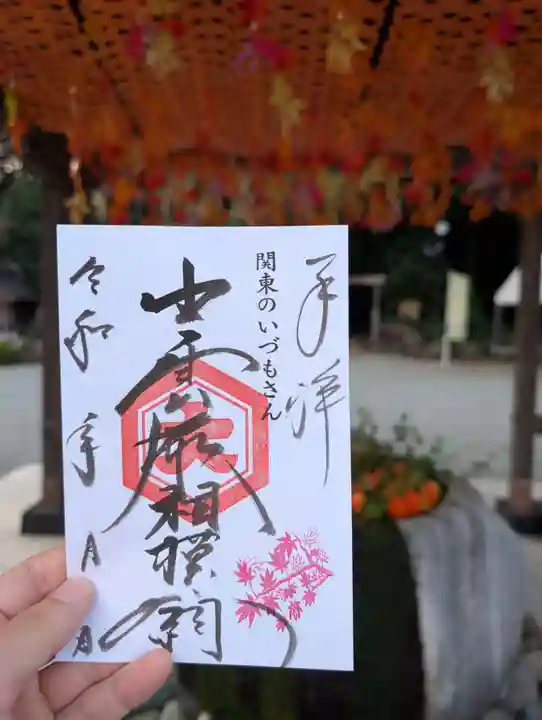 奉拝
関東のいづもさん
出雲大社相模分祠
令和 年 月 日
大